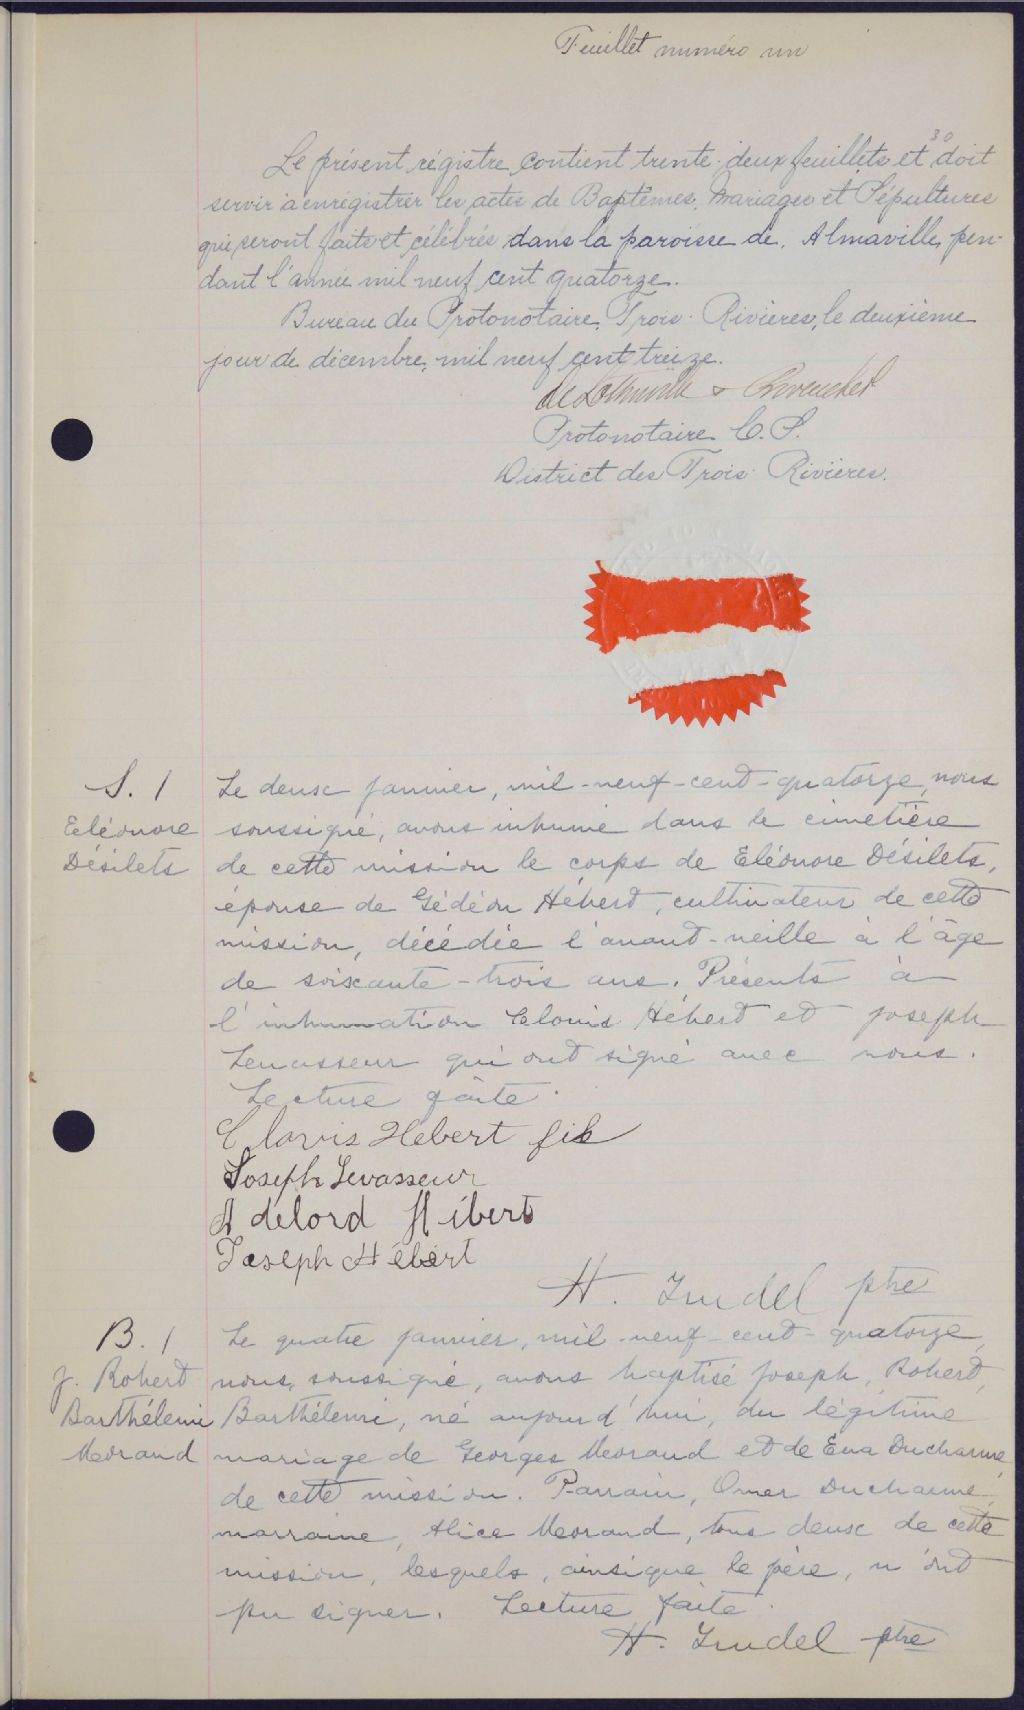 Feuillet numéro un
30
Le présent régistre contient trente-deux feuillets et doit
servir à enrégistrer les actes de Baptêmes, Mariages et Sépultures
qui seront faits et célébrés dans la paroisse de Almaville, pen-
dant l'année mil neuf cent quatorze.
Bureau du Protonotaire, Trois-Rivières, le deuxième
jour de décembre, mil neuf cent treize.
Protonotaire C. S.
District des Trois-Rivières.
S. 1
Eléonore
Désilets
Le deux janvier, mil-neuf-cent-quatorze, nous
soussigné, avons inhumé dans le cimetière
de cette mission le corps de Eléonore Désilets,
épouse de Gédéon Hébert, cultivateur de cette
mission, décédée l'avant-veille à l'âge
de soixante-trois ans. Présents à
l'inhumation Clovis Hébert et Joseph
Levasseur qui ont signé avec nous.
Lecture faite.
Clovis Hébert fils
Joseph Levasseur
Adélord Hébert
Joseph Hébert
H. Trudel ptre
B. 1
J. Robert
Barthélemi
Morand
Le quatre janvier, mil-neuf-cent-quatorze,
nous, soussigné, avons baptisé Joseph, Robert,
Barthélemi, né aujourd'hui, du légitime
mariage de Georges Morand et de Eva Ducharme,
de cette mission. Parrain, Omer Ducharme,
marraine, Alice Morand, tous deux de cette
mission, lesquels, ainsi que le père, n'ont
pu signer. Lecture faite.
H. Trudel ptre